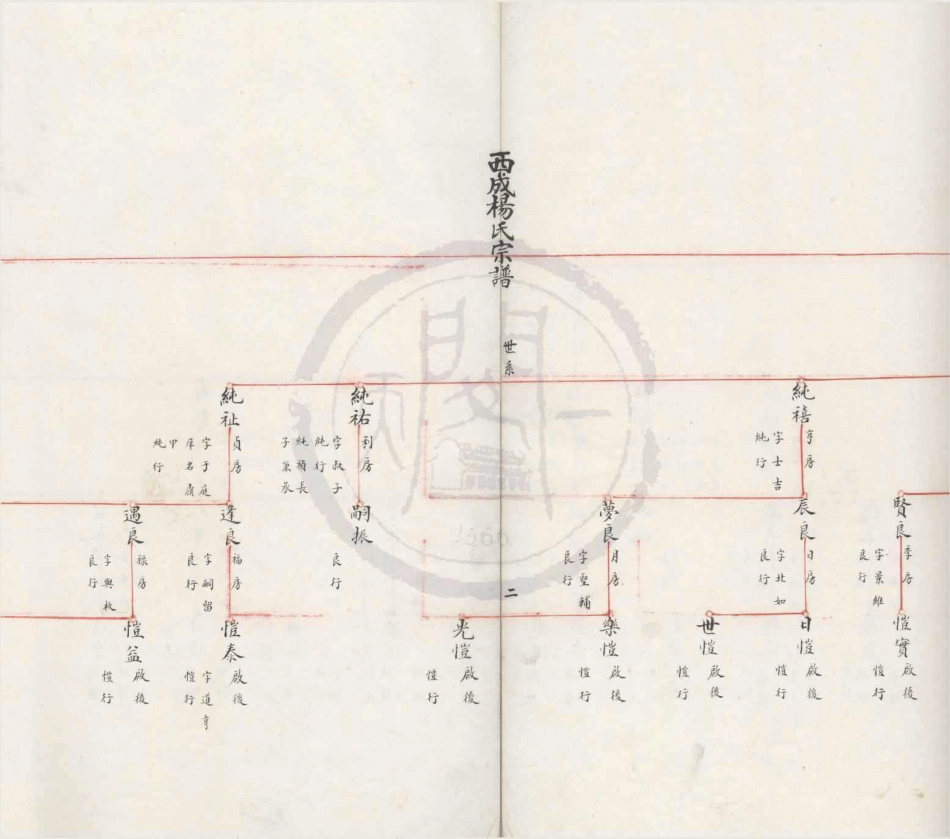 西成楊氏宗譜
世系
二
純禧
亨房
字士吉
純行
純祐
利房
字叔子
純行
純禎長
子兼承
純祉
貞房
字于庭
庠名鼐
甲
純行
賢良
季房
字景維
良行
辰良
日房
字北如
良行
夢良
月房
字聖輔
良行
嗣振
良行
逢良
福房
字嗣留
良行
遇良
祿房
字與枚
良行
愷實
啟後
愷行
日愷
啟後
愷行
世愷
啟後
愷行
樂愷
啟後
愷行
光愷
啟後
愷行
愷泰
啟後
字道亨
愷行
愷益
啟後
愷行